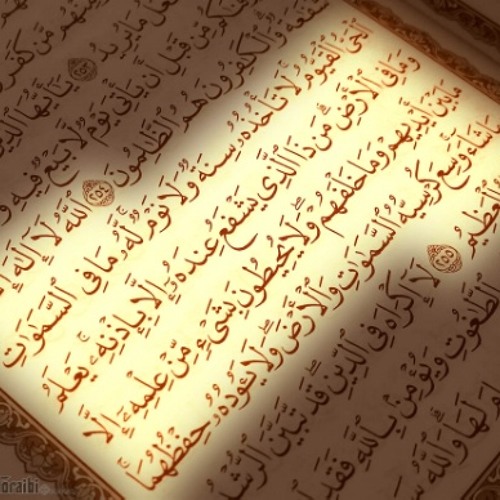 من كفر
عل ما يريد ٢٥٣ يَٰٓأَيُّهَا الذين
نكم مِّن قَبْلِ أَن يَأْتِىَ يَوْمٌ لَّا بَيْعٌ فِيهِ و
شَفَٰعَةٌ وَٱلْكَٰفِرُونَ هُمُ ٱلظَّٰلِمُونَ ٢٥٤ ٱللَّهُ لَآ إِلَٰهَ إ
ٱلْحَىُّ ٱلْقَيُّومُ لَا تَأْخُذُهُۥ سِنَةٌ وَلَا نَوْمٌ لَّهُۥ مَا فِى ٱلسَّمَٰوَٰتِ
وَمَا فِى ٱلْأَرْضِ مَن ذَا ٱلَّذِى يَشْفَعُ عِندَهُۥٓ إِلَّا بِإِذْنِهِۦ يَعْلَمُ
مَا بَيْنَ أَيْدِيهِمْ وَمَا خَلْفَهُمْ وَلَا يُحِيطُونَ بِشَىْءٍ مِّنْ عِلْمِهِۦٓ إِلَّا
بِمَا شَآءَ وَسِعَ كُرْسِيُّهُ ٱلسَّمَٰوَٰتِ وَٱلْأَرْضَ وَلَا يَـُٔودُهُۥ حِفْظُهُمَا
ٱلْعَظِيمُ ٢٥٥ لَآ إِكْرَاهَ فِى ٱلدِّينِ قَد تَّبَيَّنَ ٱلرُّشْ
ٱلطَّٰغُوتِ وَيُؤْمِنۢ بِٱللَّهِ فَقَدِ ٱ
مَ لَهَا وَٱللَّهُ سَ
oraibi